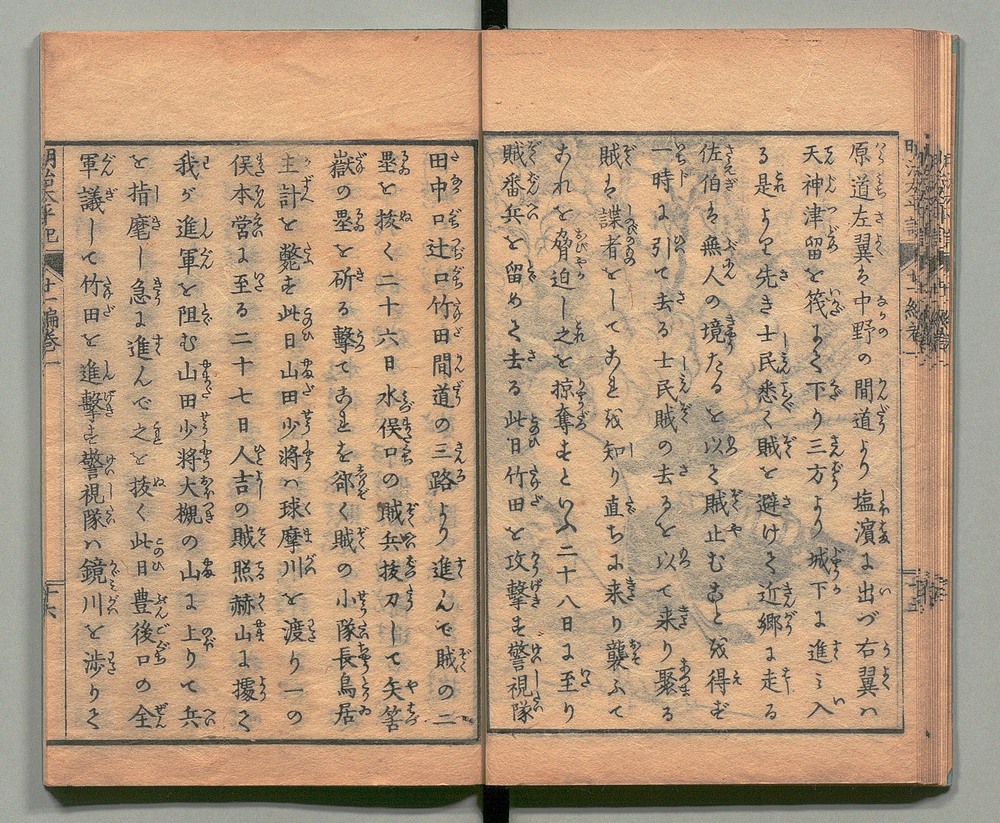 原道左翼は中野の間道より塩濱に出づ右翼ハ
天神津留を筏にて下り三方より城下に進ミ入
る是より先き士民悉く賊を避けて近郷に走る
佐伯は無人の境たるを以て賊止むことを得ず
一時に引て去る士民賊の去るを以て来り聚る
賊は諜者をしてこれを知り直ちに来り襲ふて
これを脅迫し之を掠奪すといふ二十八日に至り
賊番兵を留めて去る此日竹田を攻撃す警視隊
田中口辻口竹田間道の三路より進んで賊の二
塁を抜く二十六日水俣口の賊兵抜刀して矢筈
嶽の塁を斫る撃てこれを郤く賊の小隊長鳥居
主計を斃す此日山田少将ハ球摩川を渡り一の
俣本営に至る二十七日人吉の賊照赫山に據て
我が進軍を阻む山田少将大槻の山に上りて兵
を指麾し急に進んで之を抜く此日豊後口の全
軍議して竹田を進撃す警視隊ハ鏡川を渉りて
明治太平記 十一編巻一